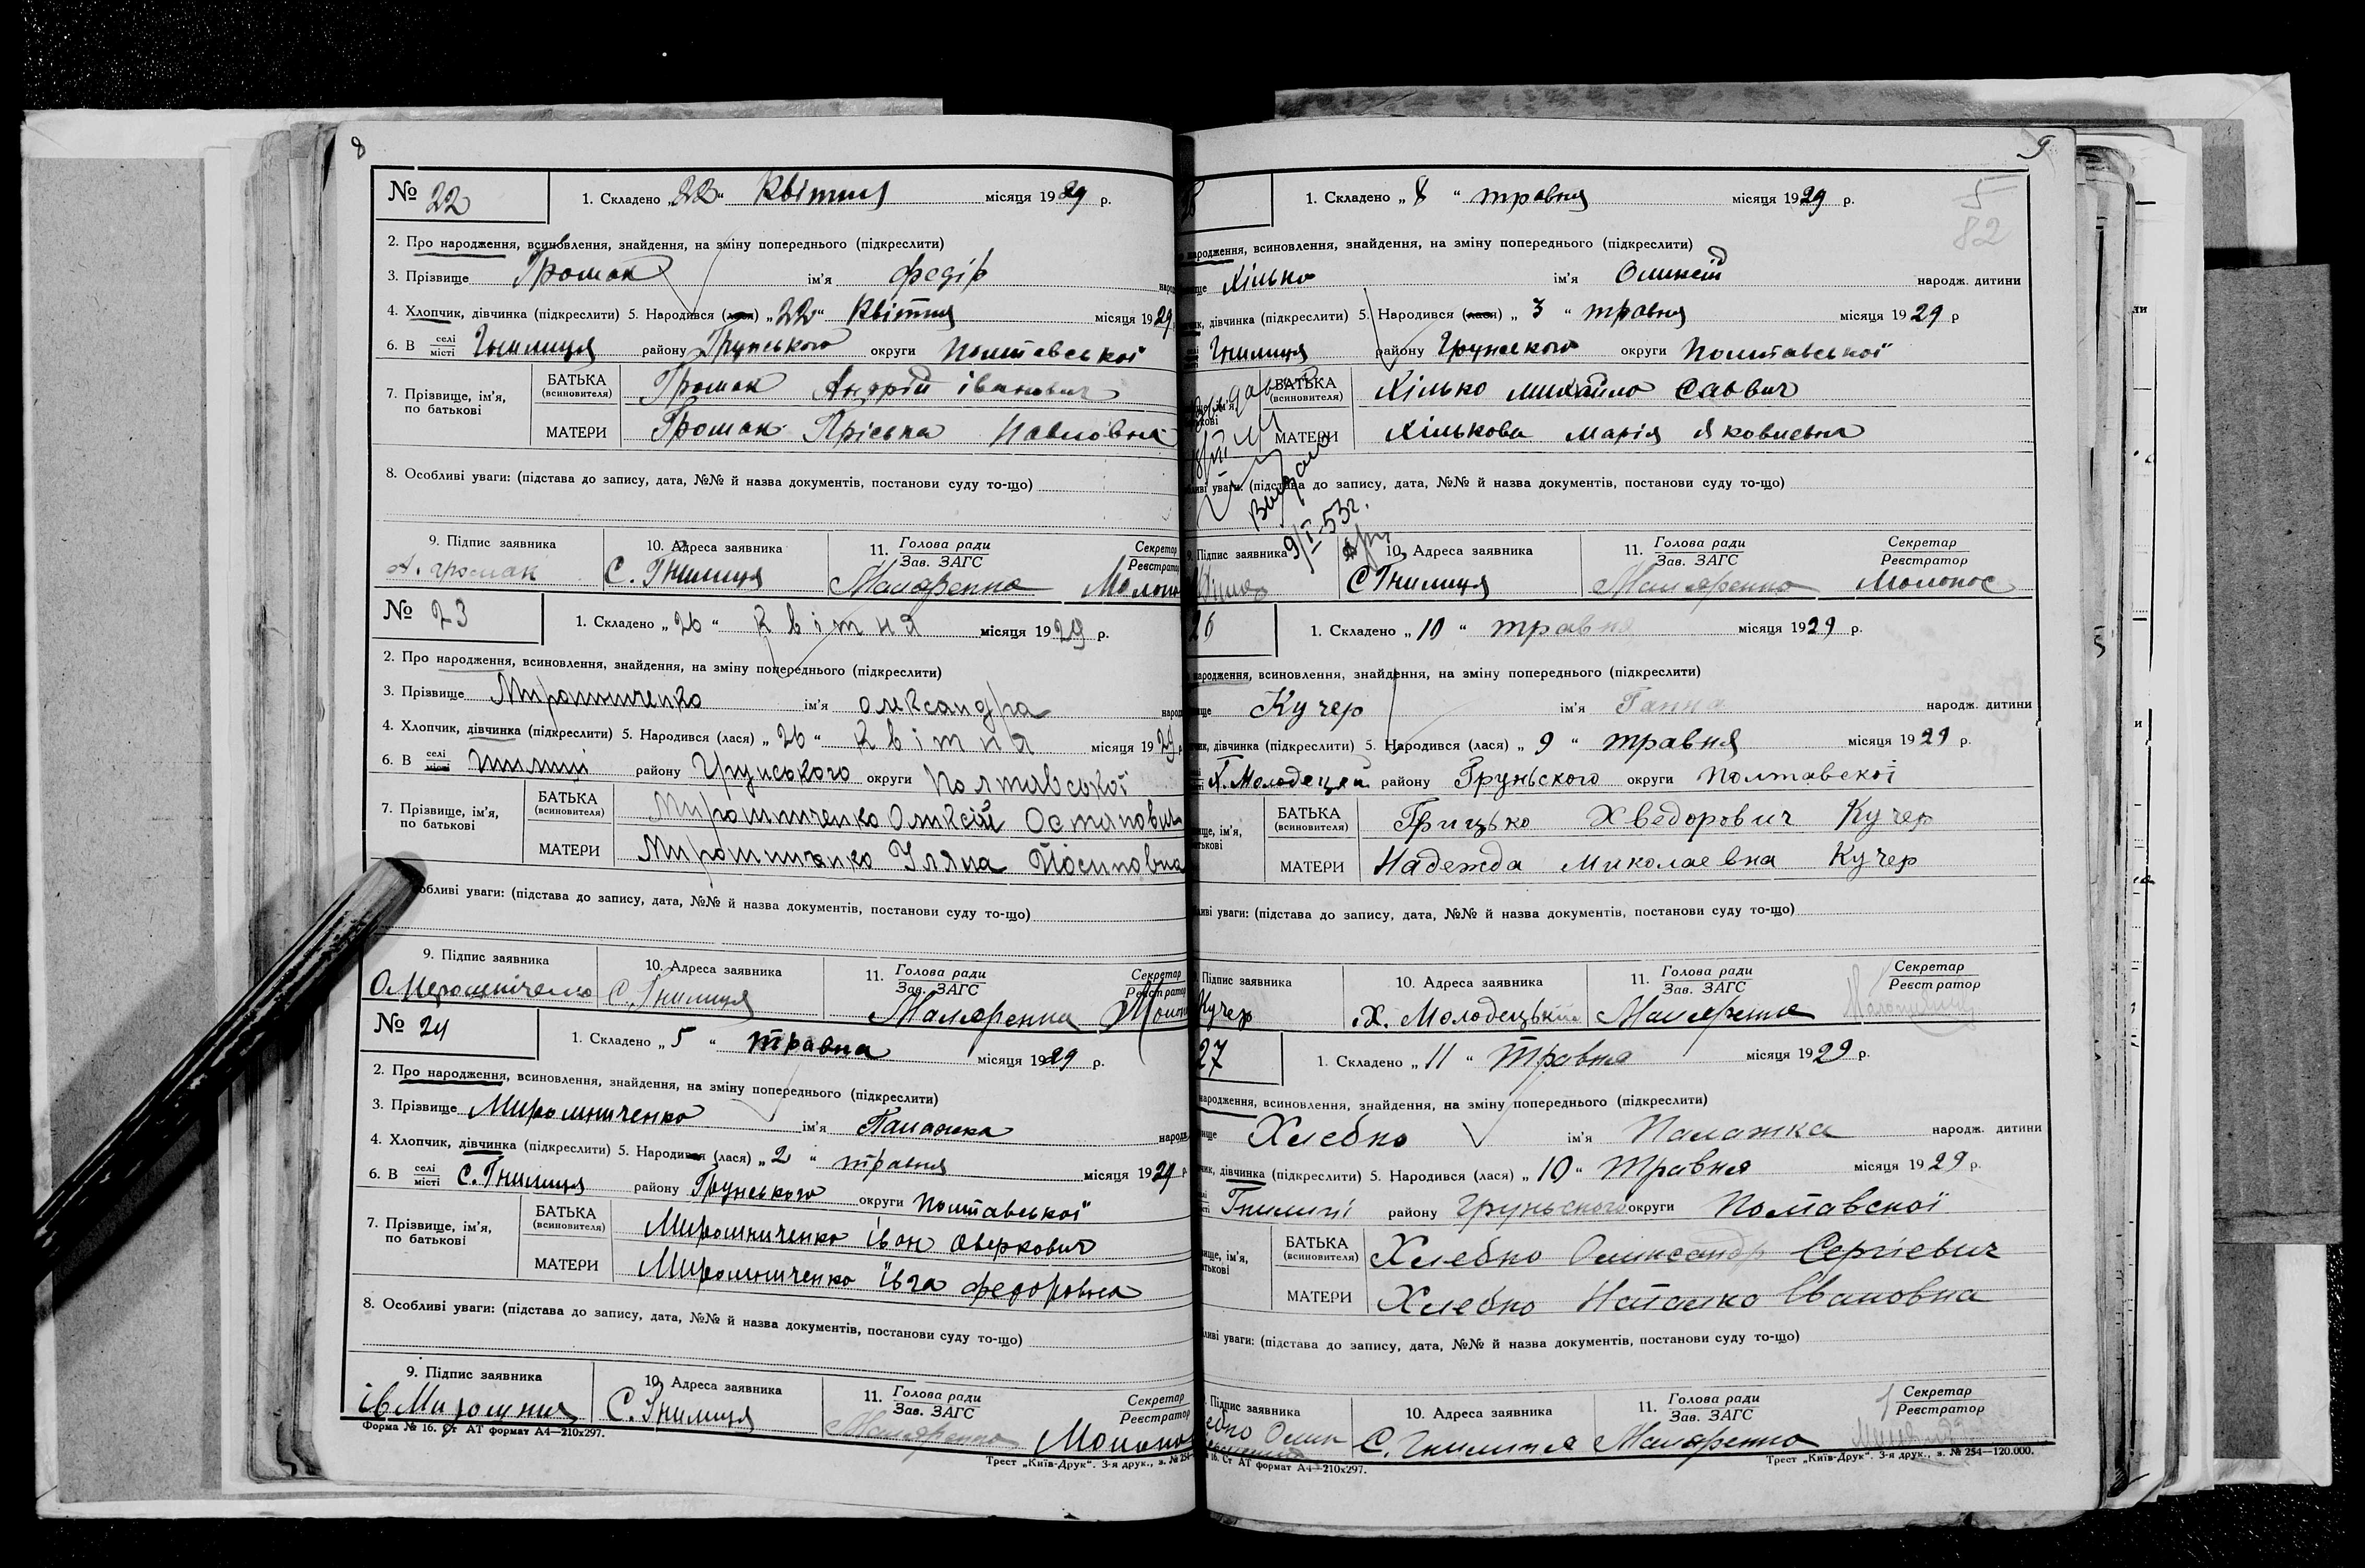 8
№ 22
1. Складено „22“ Квітня місяця 1929 р.
2. Про народження, всиновлення, знайдення, на зміну попереднього (підкреслити)
3. Прізвище Громак ім'я Федір
4. Хлопчик, дівчинка (підкреслити) 5. Народився (лася) „22“ Квітня місяця 1929
6. В селі місті Гнилиця району Грунського округи Полтавської
7. Прізвище, ім'я, по батькові
БАТЬКА (всиновителя) Громак Андрій Іванович
МАТЕРИ Громак Пріська Павловна
8. Особливі уваги: (підстава до запису, дата, №№ й назва документів, постанови суду то-що)
9. Підпис заявника 10. Адреса заявника 11. Голова ради Зав. ЗАГС Секретар Реєстратор
А. Громак С. Гнилиця Маляренко
№ 23
1. Складено „26“ Квітня місяця 1929 р.
2. Про народження, всиновлення, знайдення, на зміну попереднього (підкреслити)
3. Прізвище Мирошниченко ім'я Олександра
4. Хлопчик, дівчинка (підкреслити) 5. Народився (лася) „26“ Квітня місяця 1929
6. В селі місті району Грунського округи Полтавської
7. Прізвище, ім'я, по батькові
БАТЬКА (всиновителя) Мирошниченко Олексій Остапович
МАТЕРИ Мирошниченко Уляна Йосиповна
обливі уваги: (підстава до запису, дата, №№ й назва документів, постанови суду то-що)
9. Підпис заявника 10. Адреса заявника 11. Голова ради Зав. ЗАГС Секретар Реєстратор
О Мерошніченко С. Гнилиця Маляренко
№ 24
1. Складено „5“ травня місяця 1929 р.
2. Про народження, всиновлення, знайдення, на зміну попереднього (підкреслити)
3. Прізвище Мирошниченко ім'я Палажка
4. Хлопчик, дівчинка (підкреслити) 5. Народився (лася) „2“ травня місяця 1929 р
6. В селі місті С. Гнилиця району Грунського округи Полтавської
7. Прізвище, ім'я, по батькові
БАТЬКА (всиновителя) Мирошниченко Іван Оверкович
МАТЕРИ Мирошниченко Ївга Федоровна
8. Особливі уваги: (підстава до запису, дата, №№ й назва документів, постанови суду то-що)
9. Підпис заявника 10. Адреса заявника 11. Голова ради Зав. ЗАГС Секретар Реєстратор
С. Гнилиця Маляренко
Форма № 16. Ст АТ формат А4—210x297.
Трест „Київ-Друк“. 3-я друк., з. № 254
9
5
82
1. Складено „8“ травня місяця 1929 р.
народження, всиновлення, знайдення, на зміну попереднього (підкреслити)
Хілько ім'я Олексій народж. дитини
дівчинка (підкреслити) 5. Народився (лася) „3“ травня місяця 1929 р
Гнилиця району Грунського округи Полтавської
БАТЬКА (всиновителя) Хілько Михайло Саввич
МАТЕРИ Хількова Марія Яковлевна
уваги: (підстава до запису, дата, №№ й назва документів, постанови суду то-що)
9/I-53г.
9. Підпис заявника 10. Адреса заявника 11. Голова ради Зав. ЗАГС Секретар Реєстратор
С Гнилиця Маляренко Молокос
26
1. Складено „10“ травня місяця 1929 р.
народження, всиновлення, знайдення, на зміну попереднього (підкреслити)
Кучер ім'я Ганна народж. дитини
дівчинка (підкреслити) 5. Народився (лася) „9“ травня місяця 1929 р.
району Груньского округи Полтавскої
БАТЬКА (всиновителя) Грицько Хведорович Кучер
МАТЕРИ Надежда Миколаевна Кучер
уваги: (підстава до запису, дата, №№ й назва документів, постанови суду то-що)
Підпис заявника 10. Адреса заявника 11. Голова ради Зав. ЗАГС Секретар Реєстратор
Кучер Х. Молодецький Маляренко
27
1. Складено „11“ Травня місяця 1929 р.
народження, всиновлення, знайдення, на зміну попереднього (підкреслити)
Хлебко ім'я Палажка народж. дитини
дівчинка (підкреслити) 5. Народився (лася) „10“ Травня місяця 1929 р.
Гнилиці району Груньского округи Полтавскої
БАТЬКА (всиновителя) Хлебко Олександр Сергіевич
МАТЕРИ Хлебко Наталко Івановна
уваги: (підстава до запису, дата, №№ й назва документів, постанови суду то-що)
Підпис заявника 10. Адреса заявника 11. Голова ради Зав. ЗАГС Секретар Реєстратор
С. Гнилиця Маляренко
16. Ст АТ формат А4—210x297.
Трест „Київ-Друк“. 3-я друк., з. № 254—120.000.